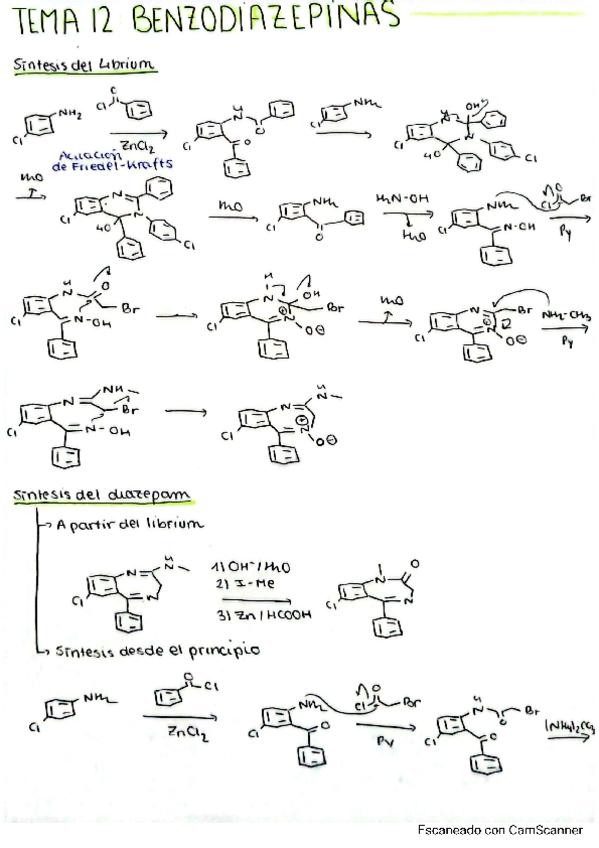 TEMA 12 BENZODIAZEPINAS
Síntesis del Librium
NH2 Cl O Cl
ZnCl2
Acilación
de Friedel-Krafts
H N O Cl O
NH2 Cl
H N OH N Cl 4O Cl
H2O
N N Cl 4O Cl
H2O
NH2 Cl O
H2N-OH
H2O
NH2 Cl N-OH
Cl O Br
Py
H N O Br Cl N-OH
H N OH Br Cl N O⊖
H2O
N Br Cl N O⊖
NH2-CH3
Py
N NH Br Cl N-OH
N H N Cl N O⊖
Síntesis del diazepam
A partir del librium
N H N Cl N
1) OH⁻/H2O
2) I-Me
3) Zn/HCOOH
N O Cl N
Síntesis desde el principio
NH2 Cl
O Cl
ZnCl2
NH2 Cl O
Cl O Br
Py
H N O Br Cl O
(NH4)2CO3
Escaneado con CamScanner